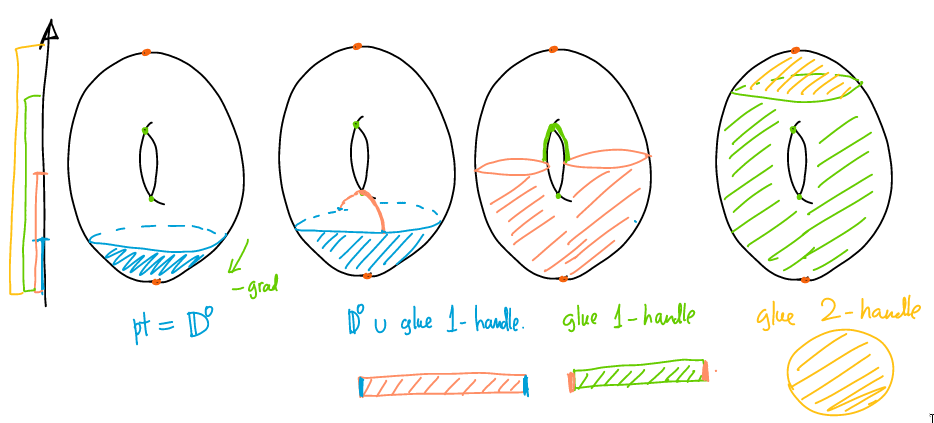 -grad
pt = 𝔻⁰
𝔻⁰ ∪ glue 1-handle.
glue 1-handle
glue 2-handle